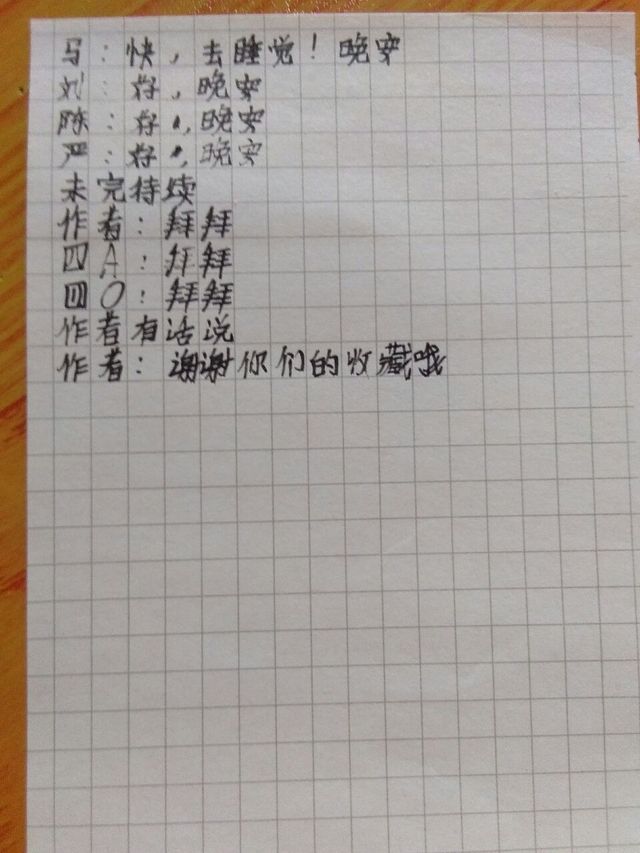 马：快，去睡觉！晚安
刘：好，晚安
陈：好，晚安
严：好，晚安
未完待续
作者：拜拜
四A：拜拜
四O：拜拜
作者有话说
作者：谢谢你们的收藏哦